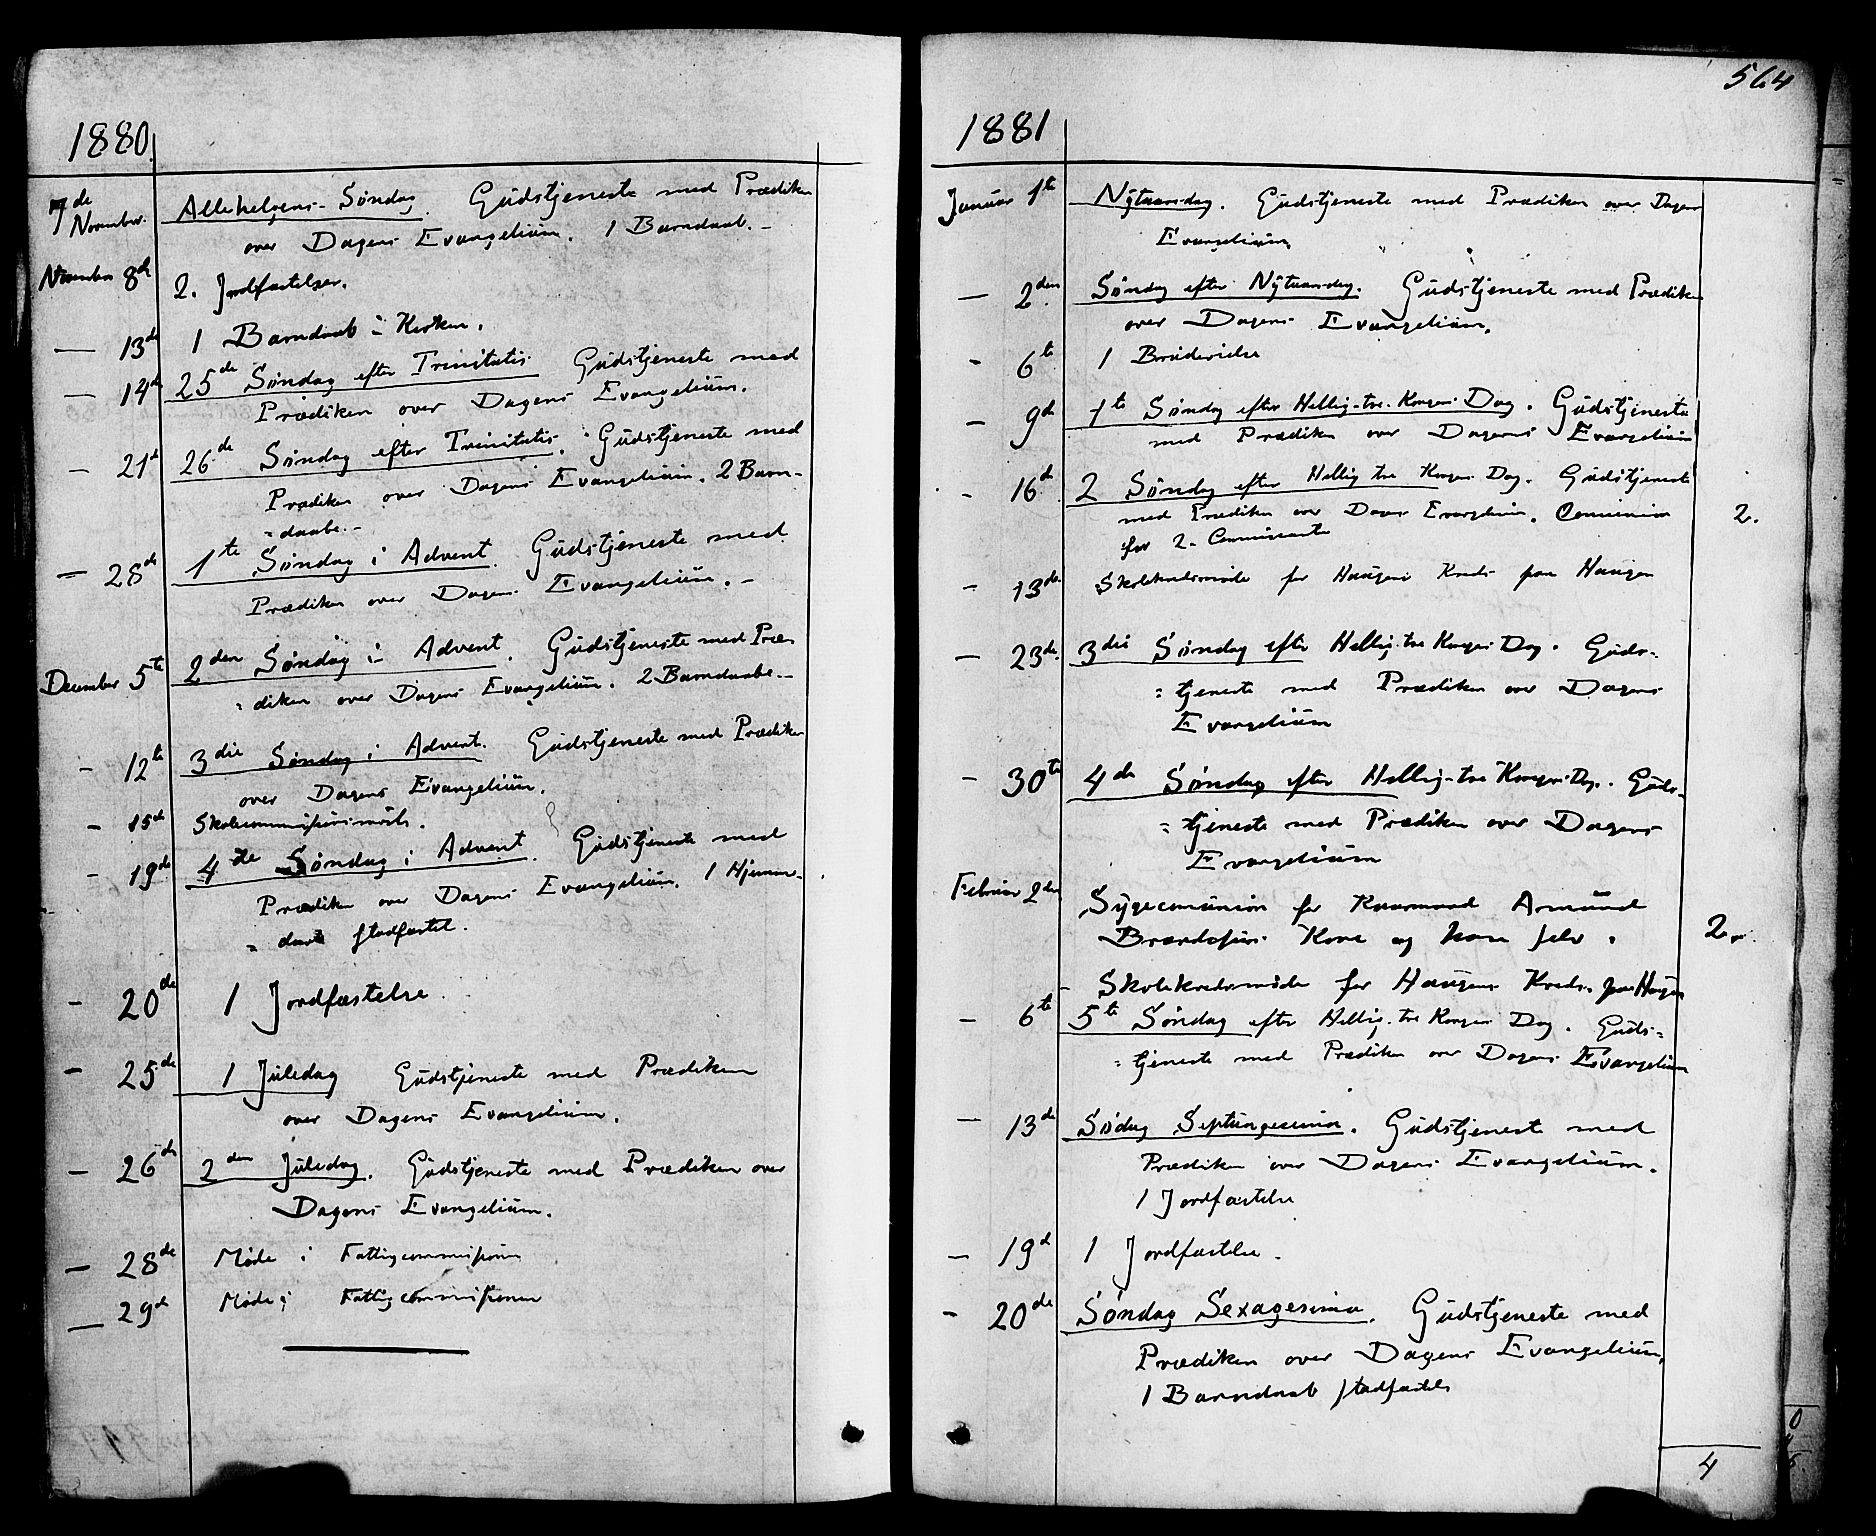 1880.
7de November. Allehelgens-Søndag. Gudstjeneste med Prædiken
over Dagens Evangelium. 1 Barndaab.-
November 8de 2. Jordfæstelser.
— 13de 1 Barndaab i Kirken.
— 14de 25de Søndag efter Trinitatis Gudstjeneste med
Prædiken over Dagens Evangelium.
— 21de 26de Søndag efter Trinitatis. Gudstjeneste med
Prædiken over Dagens Evangelium. 2 Barn-
=daabe.-
— 28de 1ste Søndag i Advent. Gudstjeneste med
Prædiken over Dagens Evangelium.-
December 5te 2den Søndag i Advent. Gudstjeneste med Præ-
=diken over Dagens Evangelium. 2 Barndaabe.-
— 12te 3die Søndag i Advent. Gudstjeneste med Prædiken
over Dagens Evangelium.
— 15de Skolecommissionsmøde.
— 19de 4de Søndag i Advent. Gudstjeneste med
Prædiken over Dagens Evangelium. 1 Hjemme-
=daab stadfæstet.
— 20de 1 Jordfæstelse.
— 25de 1 Juledag Gudstjeneste med Prædiken
over Dagens Evangelium.
— 26de 2den Juledag. Gudstjeneste med Prædiken over
Dagens Evangelium.
— 28de Møde i Fattigcommissionen
— 29de Møde i Fattigcommissionen
564
1881
Januar 1te Nytaarsdag. Gudstjeneste med Prædiken over Dagens
Evangelium
— 2den Søndag efter Nytaarsdag. Gudstjeneste med Prædiken
over Dagens Evangelium.
- 6te 1 Brudevielse
- 9de 1te Søndag efter Hellig-tre-Konger Dag. Gudstjeneste
med Prædiken over Dagens Evangelium
- 16de 2 Søndag efter Hellig tre Konger Dag. Gudstjeneste
med Prædiken over Dagens Evangelium. Communion 2.
for 2 Communicanter
- 13de Skolekredsmøde for Haugens Kreds paa Haugen
— 23de. 3die Søndag efter Hellig-tre Konger Dag. Guds-
=tjeneste med Prædiken over Dagens
Evangelium
- 30te 4de Søndag efter Hellig-tre Konger-Dag. Guds-
=tjeneste med Prædiken over Dagens
Evangelium
Februar 2den Sygecomunion for Kaarmand Amund
Kone og ham selv. 2.
- Skolekredsmøde for Haugens Kreds. paa Haugen
— 6te 5te Søndag efter Hellig-tre Konger Dag. Guds-
=tjeneste med Prædiken over Dagens Evangelium
— 13de Sødag Septuagesima. Gudstjeneste med
Prædiken over Dagens Evangelium.
1 Jordfæstelse
— 19d 1 Jordfæstelse.
- 20de Søndag Sexagesima. Gudstjeneste med
Prædiken over Dagens Evangelium,
1 Barndaab stadfæstet
4